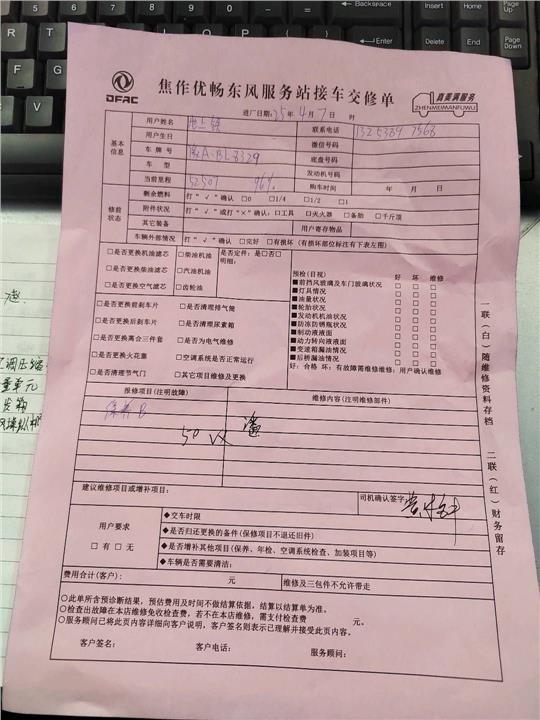 DFAC
焦作优畅东风服务站接车交修单
真美满服务
ZHENMEIMANFUWU
进厂日期:25年4月7日 时
基本信息
用户姓名
联系电话
用户生日
微信号码
车牌号
底盘号码
车型
发动机号码
当前里程 52507 96%
购车时间 年 月 日
修前状态
剩余燃油 打“√”确认 □0 □1/4 □1/2 □1
附件状况 打“√”或打“×”确认:□工具 □灭火器 □备胎 □千斤顶
其它装备
用户寄存物品
车辆外部情况 打“√”确认 □完好 □有损坏(有损坏部位标注有下表左图)
□是否更换机油滤芯 □柴油机油
□是否更换柴油滤芯 □汽油机油
□是否更换空气滤芯 □齿轮油
是否定件:是□否□
明细:
□是否更换前刹车片 □是否清理排气筒
□是否更换后刹车片 □是否清理尿素箱
□是否更换离合三件套 □是否为电气维修
□是否更换火花塞 □空调系统是否正常运行
□是否清理节气门 □其它项目维修及更换
预检(目视) 好 坏 维修
■前挡风玻璃及车门玻璃状况 □ □ □
■灯具情况 □ □ □
■油量状况 □ □ □
■轮胎状况 □ □ □
■发动机机油状况 □ □ □
■防冻防锈瓶状况 □ □ □
■制动液液面 □ □ □
■动力转向液液面 □ □ □
■变速箱漏油情况 □ □ □
■后桥漏油情况 □ □ □
好:合格 坏:有故障需维修维修:用户确认维修
报修项目(注明故障)
维修内容(注明维修部件)
保养B
50
建议维修项目或增补项目:
司机确认签字
用户要求
□有□无
◆交车时限
◆是否归还更换的备件(保修项目不退还旧件)
◆是否增补其他项目(保养、年检、空调系统检查、加装项目等)
◆车辆是否需要清洁:
费用合计(客户): 元
维修及三包件不允许带走
○此单所含预诊断结果,预估费用及时间不做结算依据,结算以结算单为准。
○检查出故障在本店维修免收检查费,若不在本店维修,需支付检查费 元。
○服务顾问已将此页内容详细向客户说明,客户签名则表示已理解并接受此页内容。
客户签名: 客户电话: 服务顾问:
一联(白)随维修资料存档
二联(红)财务留存
Backspace
Enter
Insert
Home
Page Up
Delete
End
Page Down